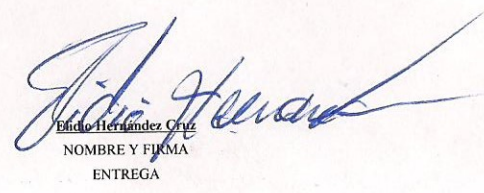 Elidio Hernández
Elidio Hernández Cruz
NOMBRE Y FIRMA
ENTREGA